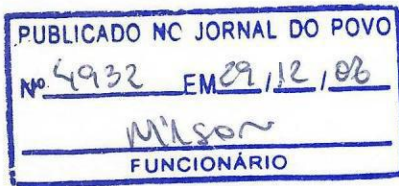 PUBLICADO NO JORNAL DO POVO
Nº 4932 EM 29/12/06
Milson
FUNCIONÁRIO